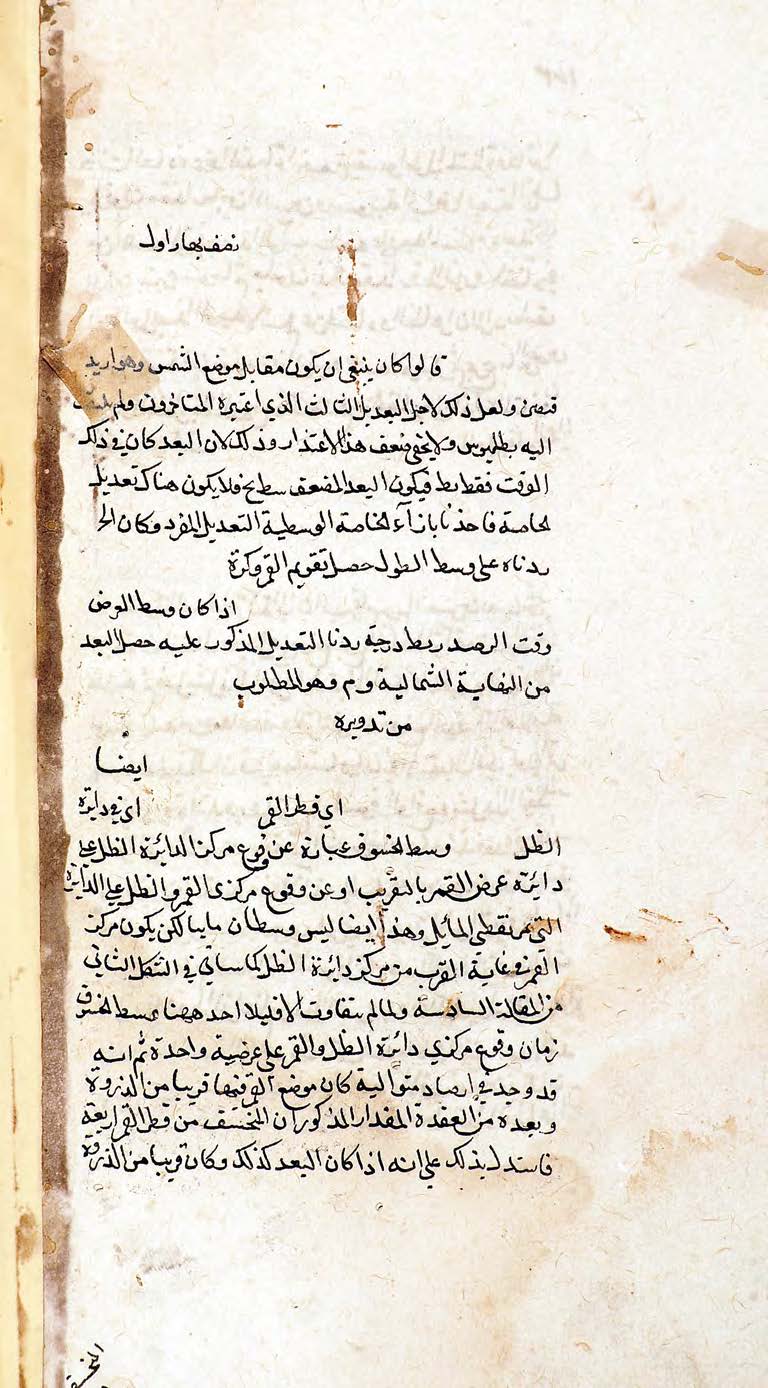 نصف نهار اول
قالوا كان ينبغي ان يكون مقابل موضع الشمس وهو اريد
قتصن ولعل ذلك لاجل التعديل الثالث الذي اعتبره المتاخرون ولم يلتفت
اليه بطلميوس ولا يخفى ضعف هذا الاعتذار وذلك لان البعد كان في ذلك
الوقت فقط بط فيكون البعد المضعف سط يح فلا يكون هناك تعديل
لخاصة فاخذنا بازآء الخاصة الوسطية التعديل المفرد وكان الح
ردناه على وسط الطول حصل تقويم القمر وكرة
اذا كان وسط العرض
وقت الرصد ربط درجة ردنا التعديل المذكور عليه حصل البعد
من النهاية الشمالية وم وهو المطلوب
من تدويره
ايضا
اي قطر القمر اي في دايرة
الظل وسط الخسوف عبارة عن وقوع مركز الدائرة الظل على
دايرة عرض القمر بالتقريب او عن وقوع مركزي القمر والظل على الدايرة
التي تمر بقطبي المايل وهذا ايضا ليس وسطان ما يبا لكن يكون مركز
القمر في غاية القرب من مركز دايرة الظل كما سياتي في الشكل الثاني
من المقالة السادسة ولما لم يتفاوت الا قليلا احد ههنا بوسط الخسوف
زمان وقوع مركزي دايرة الظل والقمر على عرضية واحدة ثم انه
قد وجد في ارصاد متوالية كان موضع القمر فيها قريبا من الذروة
وبعده من العقدة المقدار المذكور ان المنخسف من قطر القمر اربعة
فاستدل بذلك على انه اذا كان البعد كذلك وكان قريبا من الذروة